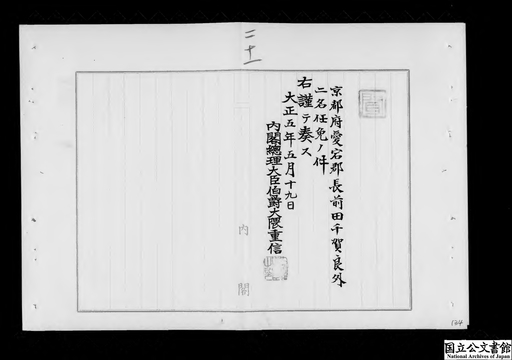 二十一
京都府愛宕郡長前田千賀良外
二名任免ノ件
右謹テ奏ス
大正五年五月十九日
内閣總理大臣伯爵大隈重信
内閣
124
国立公文書館
National Archives of Japan